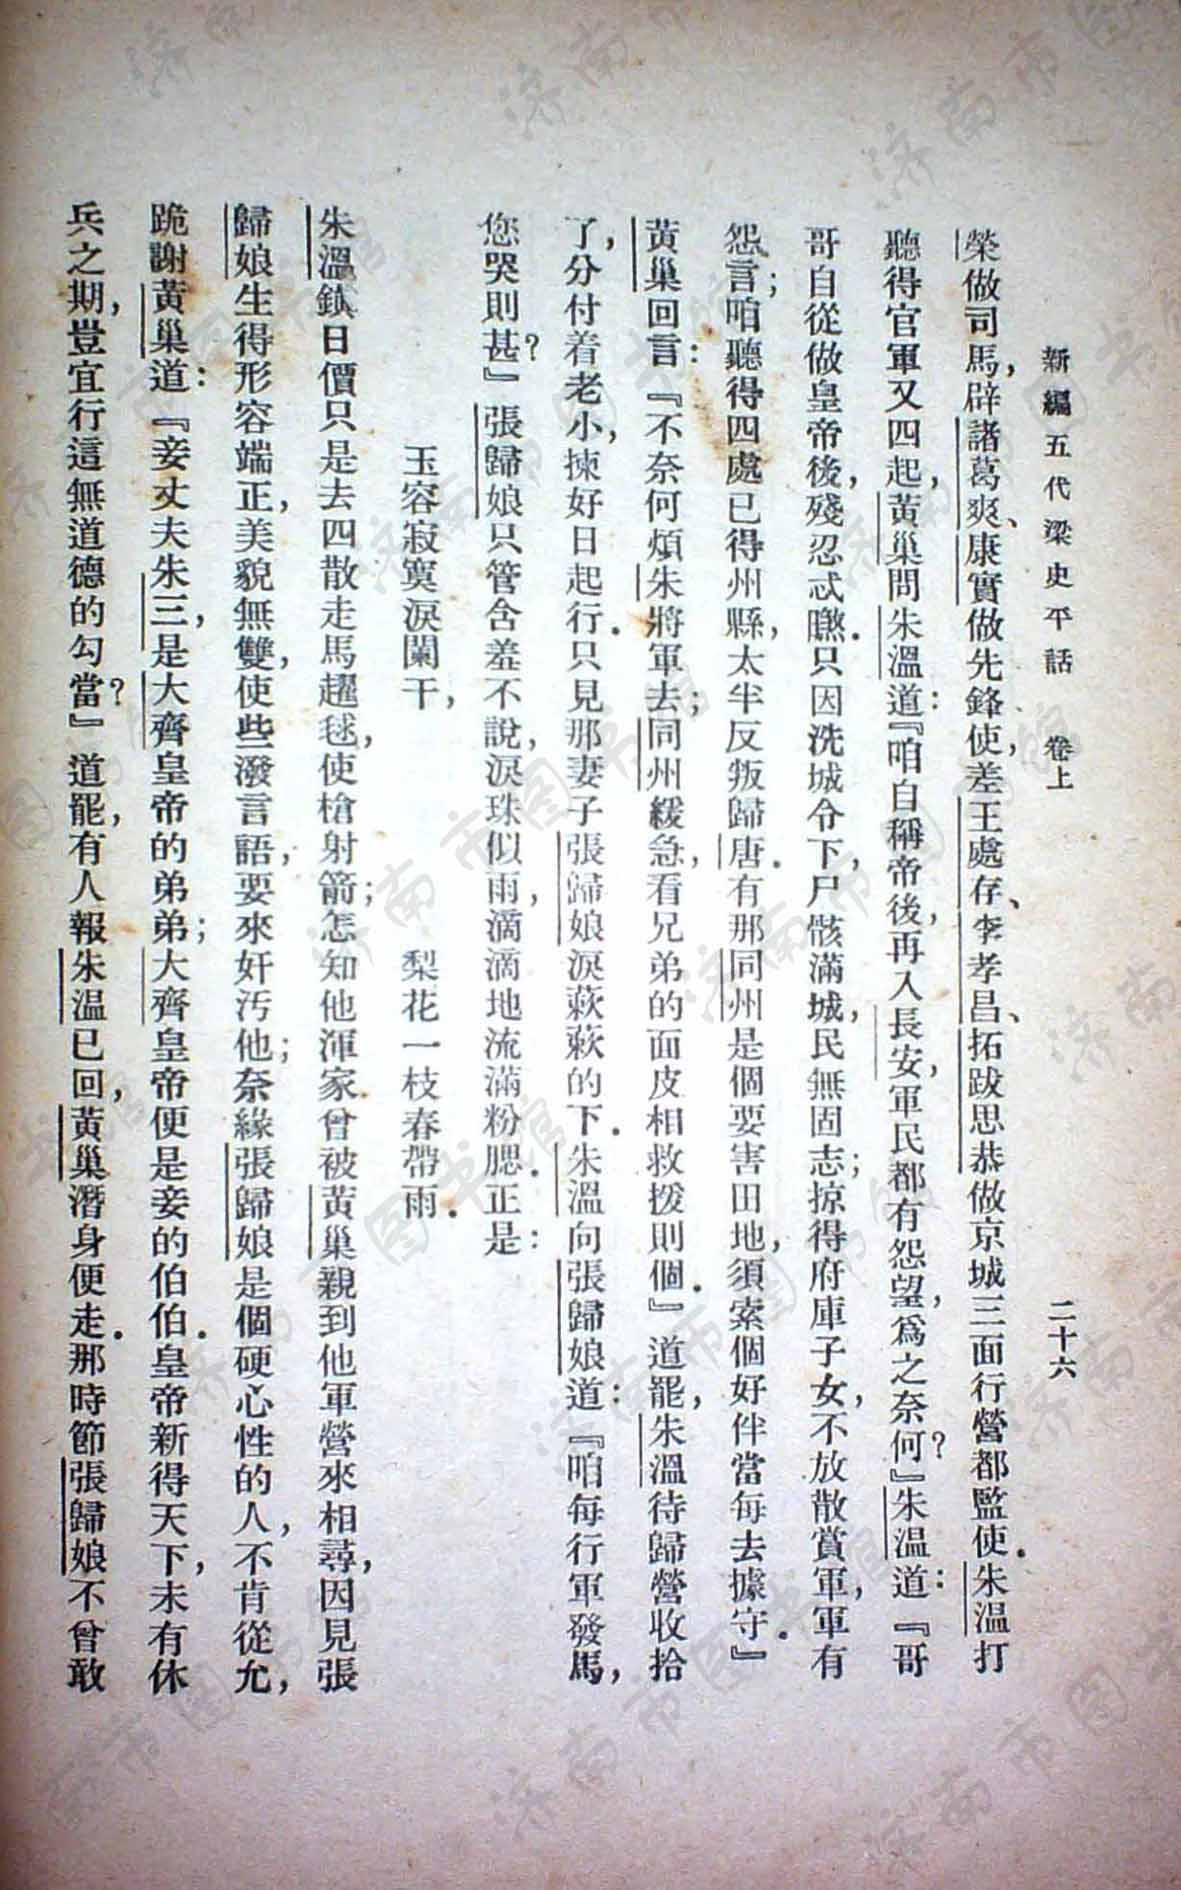 新編五代梁史平話　卷上　二十六
榮做司馬，辟諸葛爽、康實做先鋒使，差王處存、李孝昌、拓跋思恭做京城三面行營都監使．朱溫打
聽得官軍又四起，黃巢問朱溫道：『咱自稱帝後，再入長安，軍民都有怨望，爲之奈何？』朱溫道：『哥
哥自從做皇帝後，殘忍忒曒．只因洗城令下，尸骸滿城，民無固志；掠得府庫子女，不放散賞軍，軍有
怨言；咱聽得四處已得州縣，太半反叛歸唐．有那同州是個要害田地，須索個好伴當每去據守．』
黃巢回言：『不奈何煩朱將軍去；同州緩急，看兄弟的面皮相救援則個．』道罷，朱溫待歸營收拾
了，分付着老小，揀好日起行．只見那妻子張歸娘淚蔌蔌的下．朱溫向張歸娘道：『咱每行軍發馬，
您哭則甚？』張歸娘只管含羞不說，淚珠似雨，滴滴地流滿粉腮．正是：
玉容寂寞淚闌干，　梨花一枝春帶雨．
朱溫鎮日價只是去四散走馬趯毬，使槍射箭；怎知他渾家曾被黃巢親到他軍營來相尋，因見張
歸娘生得形容端正，美貌無雙，使些潑言語，要來奸污他；奈緣張歸娘是個硬心性的人，不肯從允，
跪謝黃巢道：『妾丈夫朱三，是大齊皇帝的弟弟；大齊皇帝便是妾的伯伯．皇帝新得天下，未有休
兵之期，豈宜行這無道德的勾當？』道罷，有人報朱溫已回，黃巢潛身便走．那時節張歸娘不曾敢
济南市图书馆